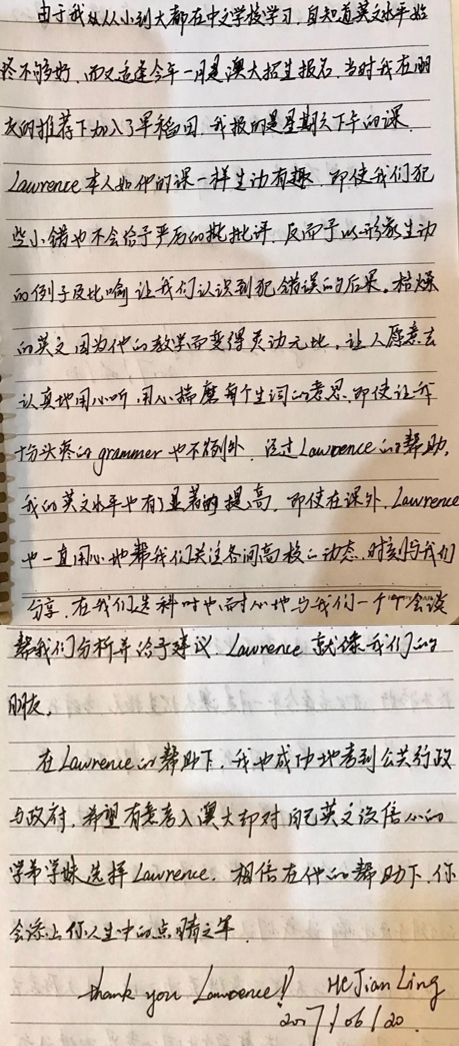 由于我从从小到大都在中文学校学习,自知道英文水平始
终不够好,而又适逢今年一月是澳大招生报名,当时我在朋
友的推荐下加入了早稻田,我报的是星期六下午的课,
Lawrence本人如他的课一样生动有趣,即使我们犯
些小错也不会给予严厉的批批评,反而予以形象生动
的例子及比喻让我们认识到犯错误的后果。枯燥
的英文因为他的教学而变得灵动无比,让人愿意去
认真地用心听,用心揣磨每个生词的意思,即使让我
十分头疼的grammer也不例外,经过Lawrence的帮助,
我的英文水平也有了显著的提高,即使在课外,Lawrence
也一直用心地帮我们关注各间高校的动态,时刻与我们
分享,在我们选科时也耐心地与我们一个个会谈
帮我们分析并给予建议,Lawrence就像我们的
朋友。
在Lawrence的帮助下,我也成功地考到公共行政
与政府,希望有意考入澳大却对自己英文没信心的
学弟学妹选择Lawrence,相信在他的帮助下,你
会添上你人生中的点睛之笔,
thank you Lawrence!! He Jian Ling
2017/06/20.